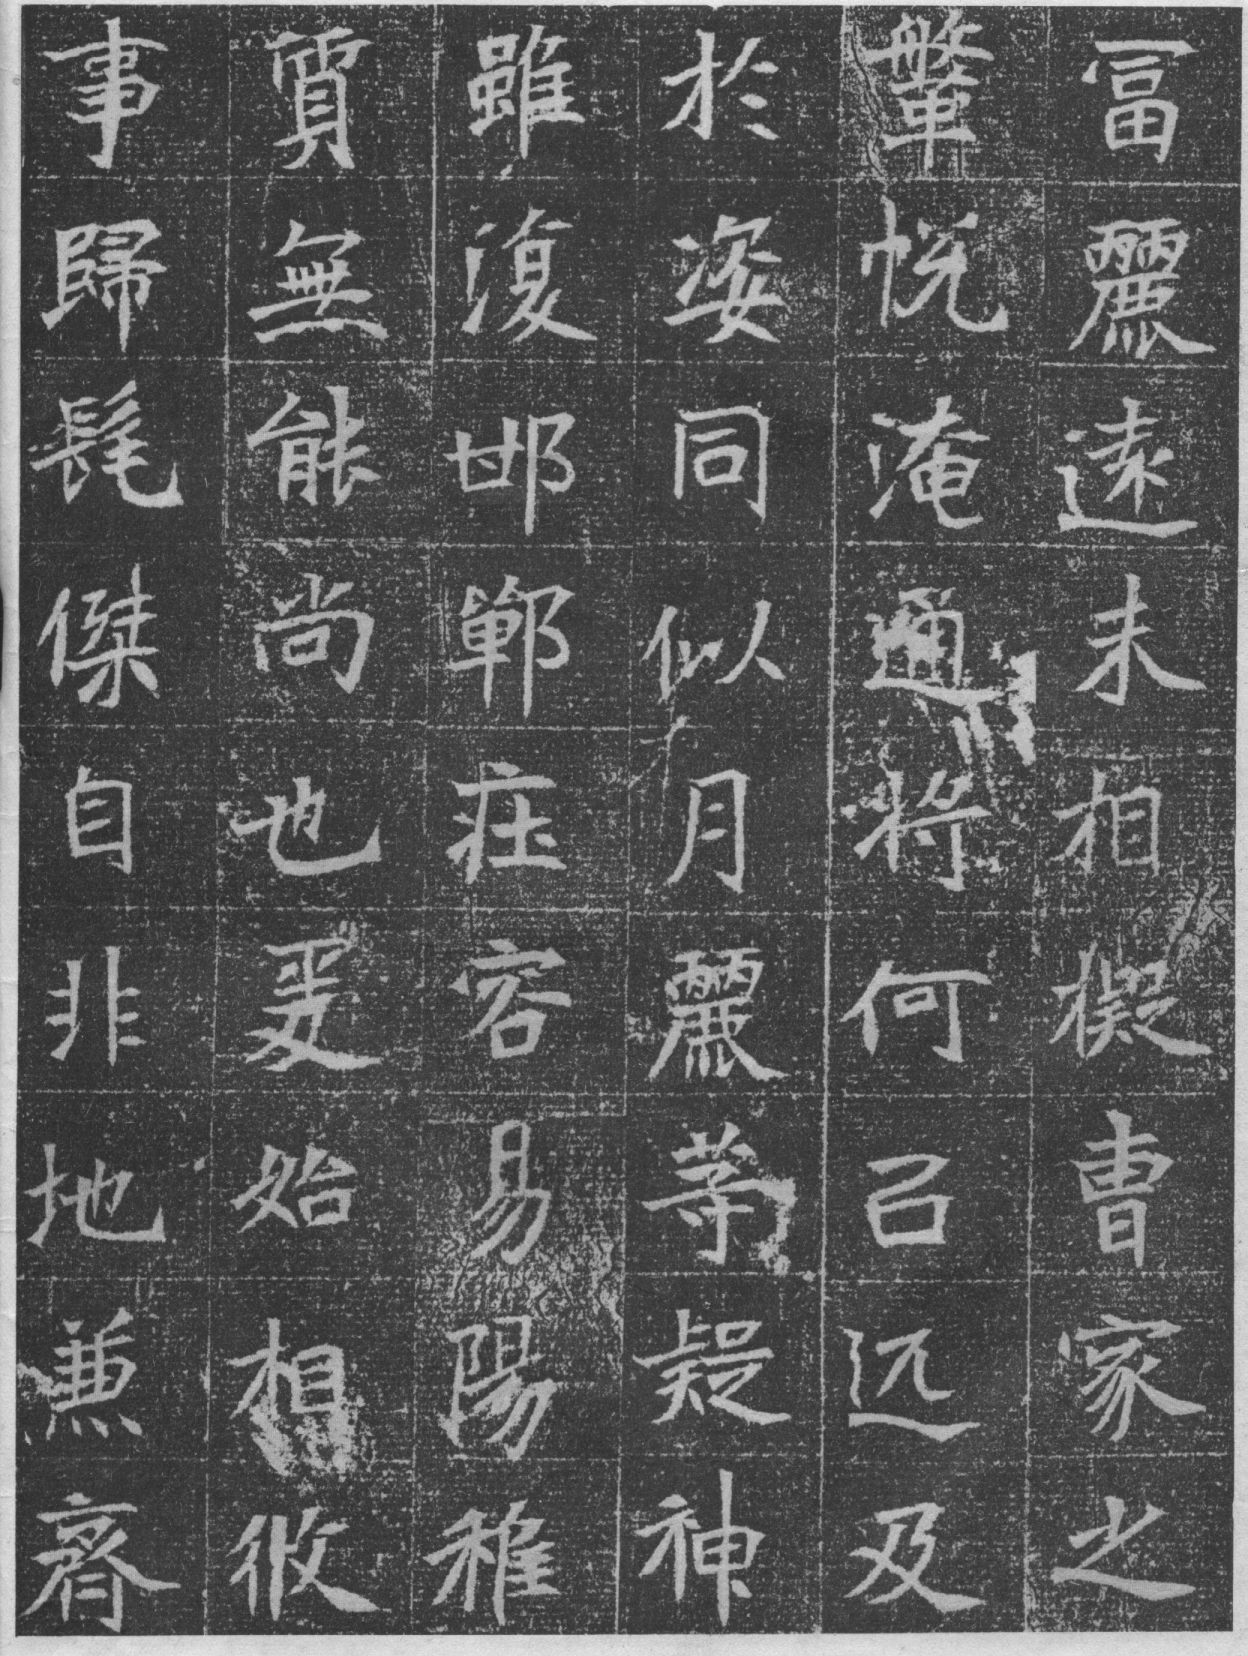 冨麗遠未相擬曹家之
鞶帨淹通將何召远及
於姿同似月麗等疑神
雖復邯鄲莊容易陽稚
質無能尚也爰始相攸
事歸髦傑自非地兼齊